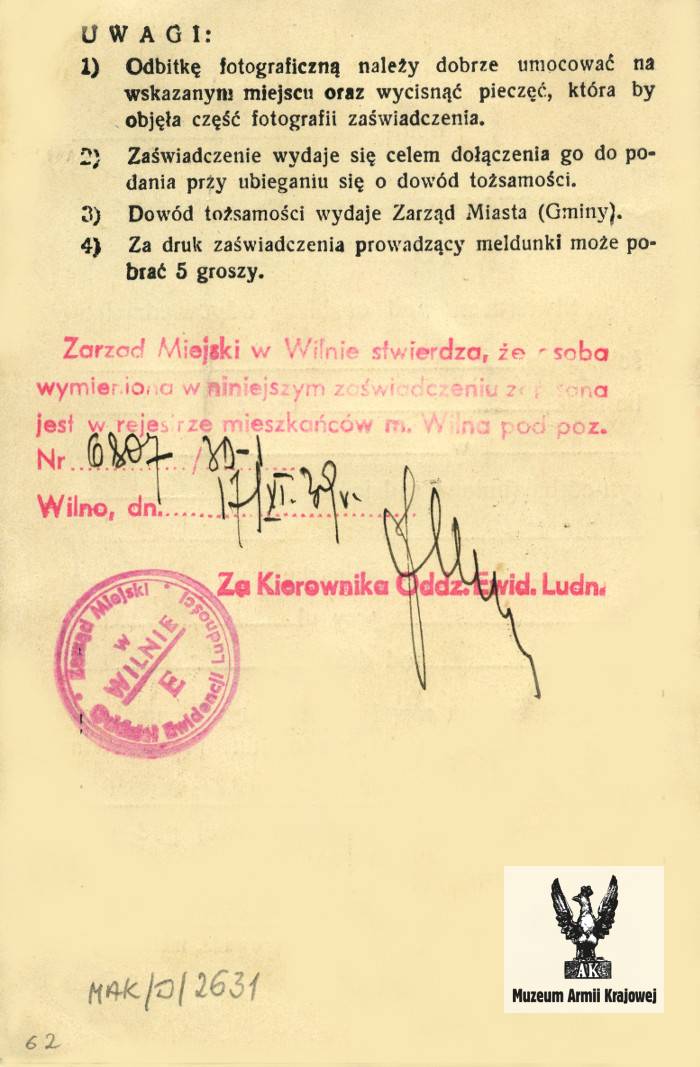 UWAGI:
1) Odbitkę fotograficzną należy dobrze umocować na
wskazanym miejscu oraz wycisnąć pieczęć, która by
objęła część fotografii zaświadczenia.
2) Zaświadczenie wydaje się celem dołączenia go do po-
dania przy ubieganiu się o dowód tożsamości.
3) Dowód tożsamości wydaje Zarząd Miasta (Gminy).
4) Za druk zaświadczenia prowadzący meldunki może po-
brać 5 groszy.
Zarząd Miejski w Wilnie stwierdza, że osoba
wymieniona w niniejszym zaświadczeniu zapisana
jest w rejestrze mieszkańców m. Wilna pod poz.
Nr 6807 /
Wilno, dn. 17/XI. 39 r.
Za Kierownika Oddz. Ewid. Ludn.
Zarząd Miejski
w
WILNIE
E
Oddział Ewidencji Ludności
AK
Muzeum Armii Krajowej
MAK/D/2631
62